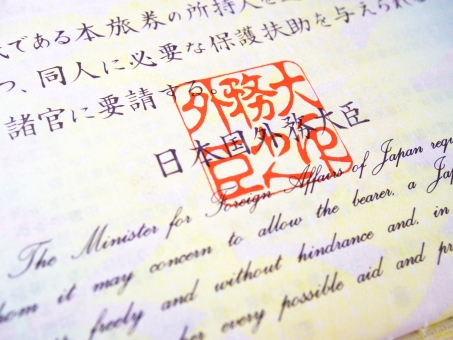 である本旅券の所持人を
つ、同人に必要な保護扶助を与えられる
諸官に要請する。
日本国外務大臣
The Minister for Foreign Affairs of Japan
it may concern to allow the bearer, a
freely and without hindrance and, in
her every possible aid and